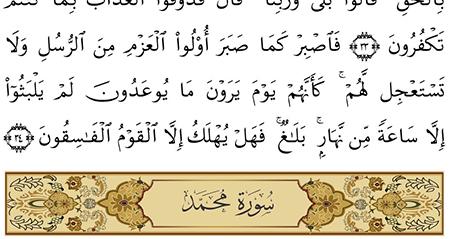 بِالْحَقِّ قَالُواْ بَلَىٰ وَرَبِّنَا قَالَ فَذُوقُواْ الْعَذَابَ بِمَا كُنتُمْ
تَكْفُرُونَ ٣٣ فَاصْبِرْ كَمَا صَبَرَ أُوْلُواْ الْعَزْمِ مِنَ الرُّسُلِ وَلَا
تَسْتَعْجِل لَّهُمْ ۚ كَأَنَّهُمْ يَوْمَ يَرَوْنَ مَا يُوعَدُونَ لَمْ يَلْبَثُوٓاْ
إِلَّا سَاعَةً مِّن نَّهَارٍ ۚ بَلَٰغٌ ۚ فَهَلْ يُهْلَكُ إِلَّا الْقَوْمُ الْفَٰسِقُونَ ٣٤
سُورَةُ مُحَمَّد